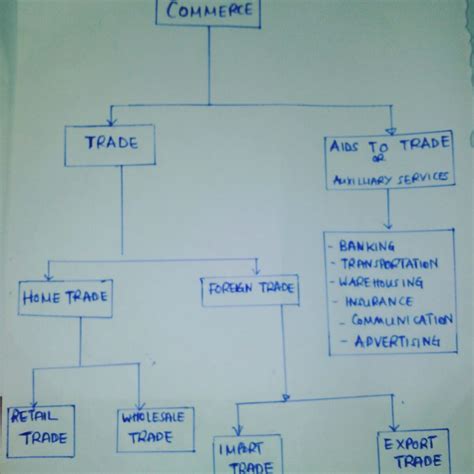 COMMERCE
TRADE
AIDS TO TRADE
OR
AUXILLIARY SERVICES
- BANKING
- TRANSPORTATION
- WAREHOUSING
- INSURANCE
- COMMUNICATION
- ADVERTISING
HOME TRADE
FOREIGN TRADE
RETAIL
TRADE
WHOLESALE
TRADE
IMPORT
TRADE
EXPORT
TRADE